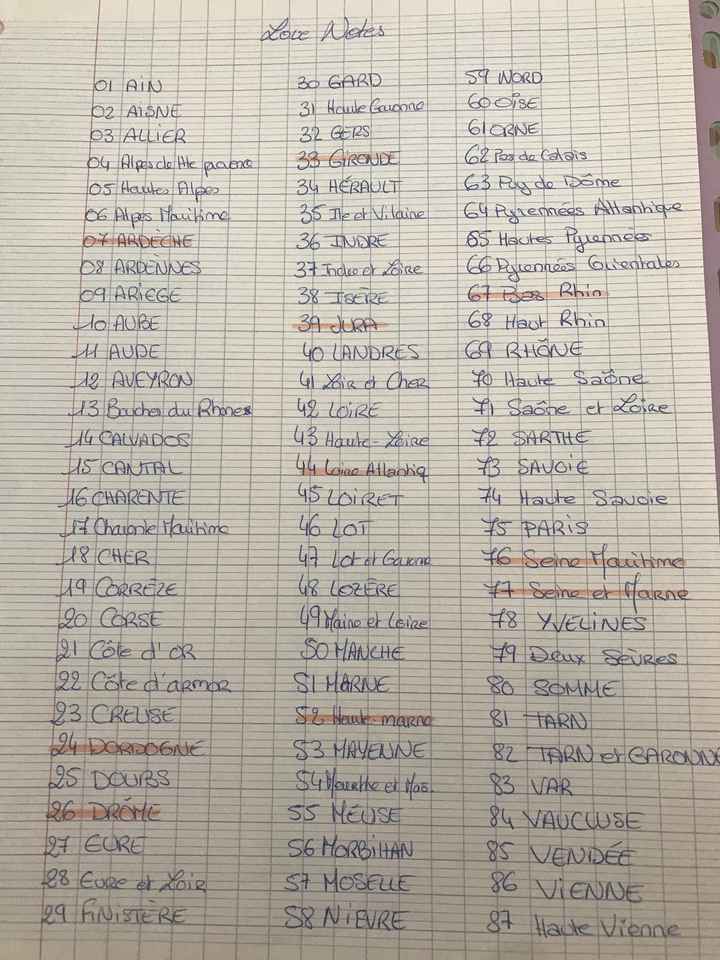 Love Notes
01 AIN
02 AISNE
03 ALLIER
04 Alpes de Hte provence
05 Hautes Alpes
06 Alpes Maritime
07 ARDÈCHE
08 ARDENNES
09 ARIEGE
10 AUBE
11 AUDE
12 AVEYRON
13 Bouches du Rhônes
14 CALVADOS
15 CANTAL
16 CHARENTE
17 Charente Maritime
18 CHER
19 CORRÈZE
20 CORSE
21 Côte d'OR
22 Côte d'armor
23 CREUSE
24 DORDOGNE
25 DOUBS
26 DRÔME
27 EURE
28 Eure et Loir
29 FINISTÈRE
30 GARD
31 Haute Garonne
32 GERS
33 GIRONDE
34 HÉRAULT
35 Ile et Vilaine
36 INDRE
37 Indre et Loire
38 ISERE
39 JURA
40 LANDRES
41 Loir et Cher
42 LOIRE
43 Haute-Loire
44 Loire Atlantiq
45 LOIRET
46 LOT
47 Lot et Garonne
48 LOZÈRE
49 Maine et Loire
50 MANCHE
51 MARNE
52 Haute-marne
53 MAYENNE
54 Meurthe et Mos.
55 MEUSE
56 MORBIHAN
57 MOSELLE
58 NIEVRE
59 NORD
60 OISE
61 ORNE
62 Pas de Calais
63 Puy de Dôme
64 Pyrennées Atlantique
65 Hautes Pyrennées
66 Pyrennées Orientales
67 Bas Rhin
68 Haut Rhin
69 RHÔNE
70 Haute Saône
71 Saône et Loire
72 SARTHE
73 SAVOIE
74 Haute Savoie
75 PARIS
76 Seine Maritime
77 Seine et Marne
78 YVELINES
79 Deux SEVRES
80 SOMME
81 TARN
82 TARN et GARONNE
83 VAR
84 VAUCLUSE
85 VENDÉE
86 VIENNE
87 Haute Vienne